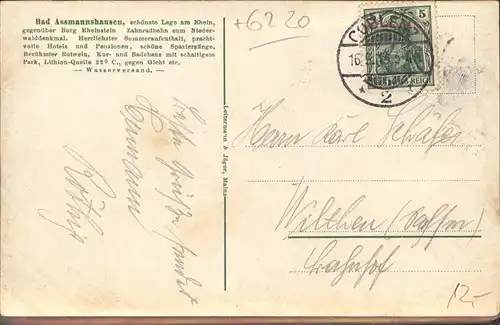 Bad Assmannshausen, schönste Lage am Rhein,
gegenüber Burg Rheinstein Zahnradbahn zum Nieder-
walddenkmal. Herrlichster Sommeraufenthalt, pracht-
volle Hotels und Pensionen, schöne Spaziergänge.
Berühmter Rotwein, Kur- und Badehaus mit schattigem
Park, Lithion-Quelle 32° C., gegen Gicht etc.
— Wasserversand. —
+6220
COBLENZ
16.
* 2
5
REICH
Leitermann & Jäger, Mainz
Beste Grüße sendet
Hermann
Herrn Karl Schäfer
Wilthen (Sachsen)
Bahnhof
12,-